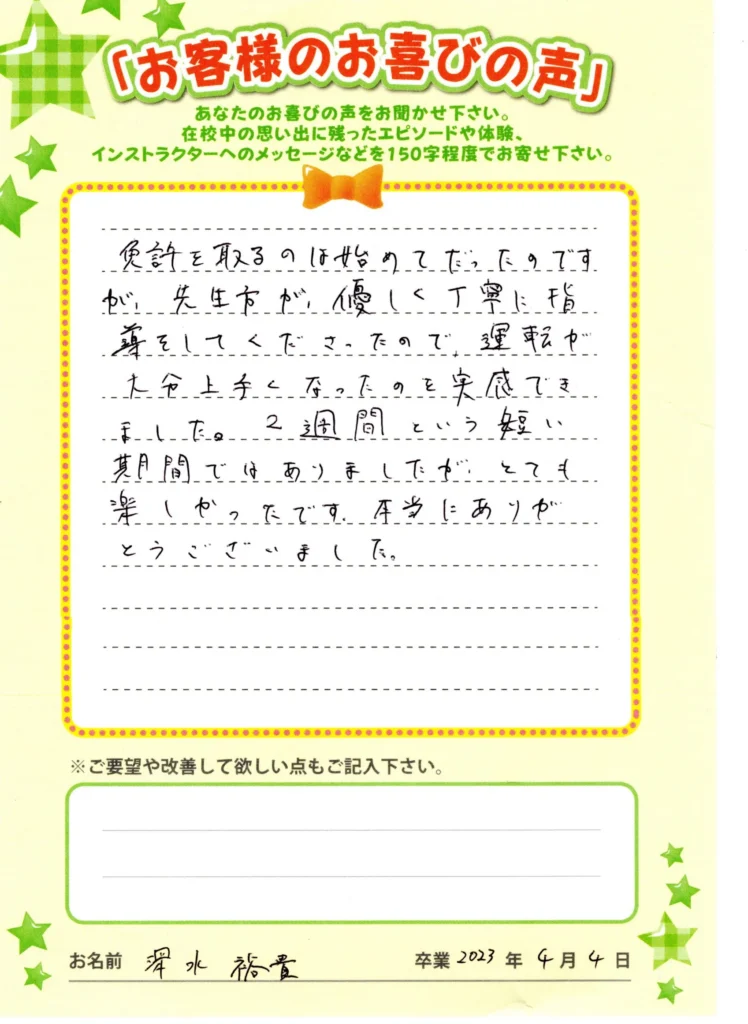 「お客様のお喜びの声」
あなたのお喜びの声をお聞かせ下さい。
在校中の思い出に残ったエピソードや体験、
インストラクターへのメッセージなどを150字程度でお寄せ下さい。
免許を取るのは始めてだったのです
が、先生方が、優しく丁寧に指
導をしてくださったので、運転が
大分上手くなったのを実感でき
ました。2週間という短い
期間ではありましたが、とても
楽しかったです。本当にありが
とうございました。
※ご要望や改善して欲しい点もご記入下さい。
お名前 水 裕貴 卒業 2023 年 4 月 4 日